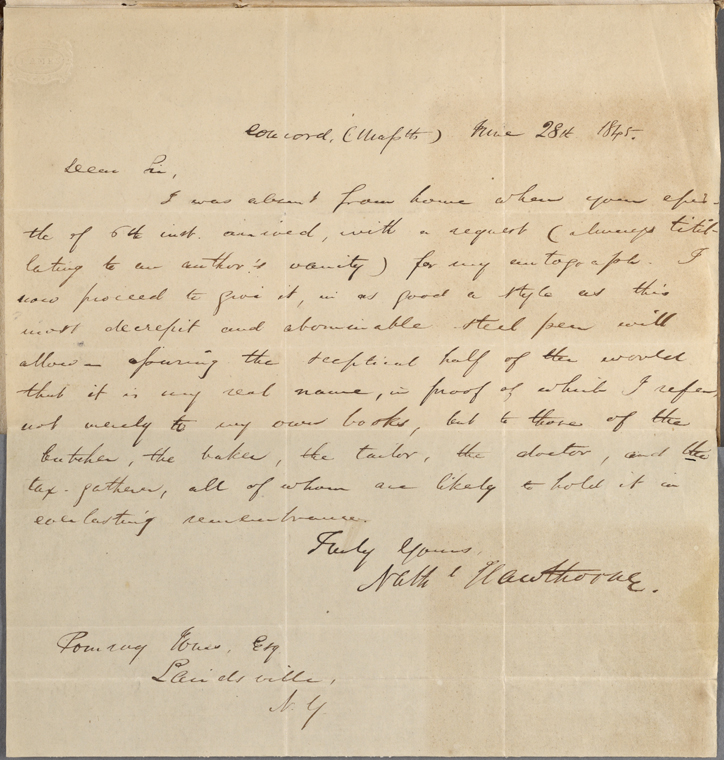 Concord, (Massts) June 28th 1845.
Dear Sir,
I was absent from home when your epis-
tle of 6th inst. arrived, with a request (always titil-
lating to an author's vanity) for my autograph. I
now proceed to give it, in as good a style as this
most decrepit and abominable steel pen will
allow— the sceptical half of the world
that it is my real name, in proof of which I refer
not merely to my own books, but to those of the
butcher, the baker, the tailor, the doctor, and the
tax-gatherer, all of whom are likely to hold it in
everlasting remembrance.
Truly Yours,
Nathl Hawthorne.
Pomroy Jones, Esq
Lairdsville,
N. Y